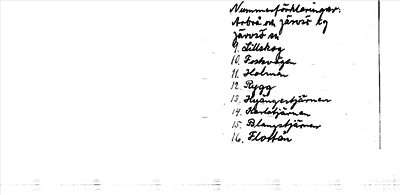 Nummerförklaringar:
Arbrå och Järvsö kg
Järvsö sn
9. Lillskog
10. Forkvågen
11. Holmen
12. Bygg
13. Hyångestjärnen
14. Karlstjärnen
15. Blangstjärnen
16. Flottån